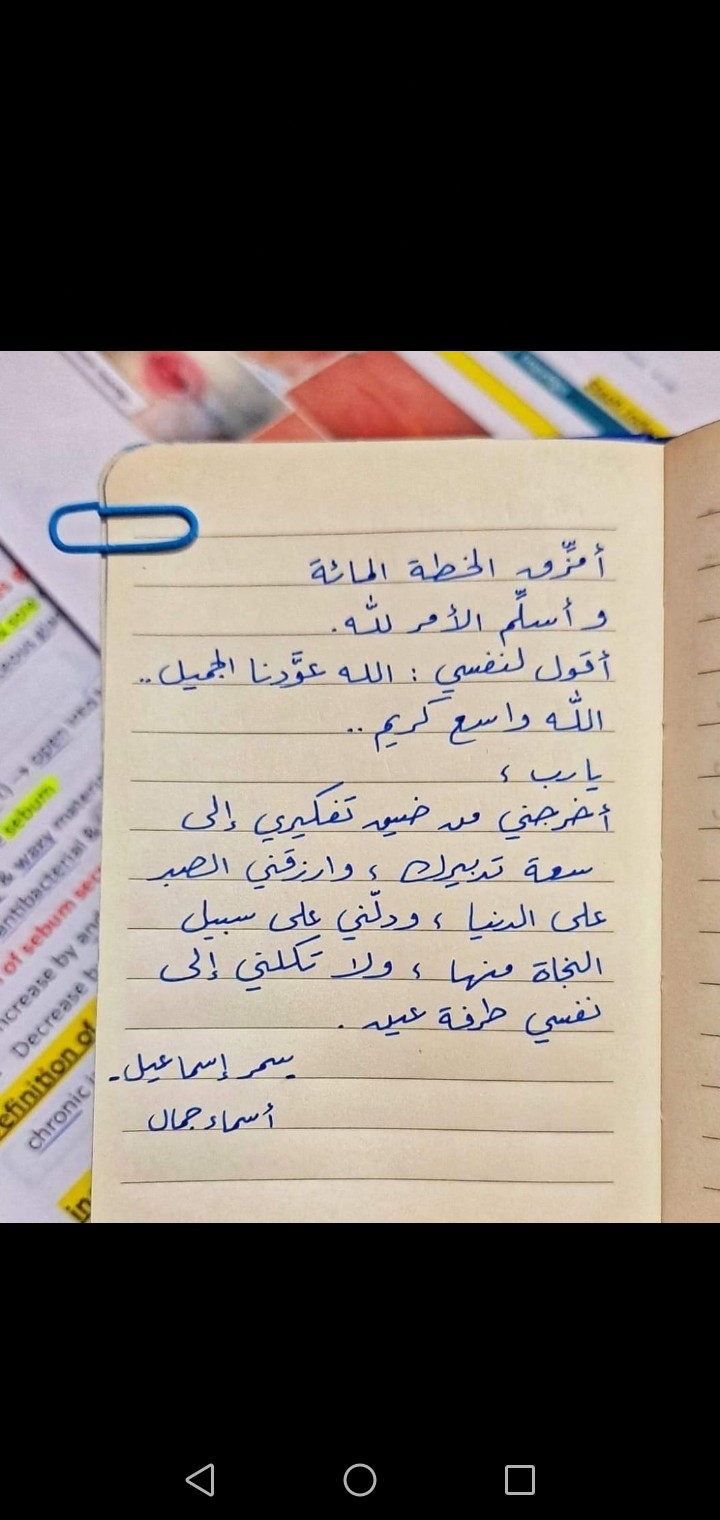 أمزِّق الخطة المائة
و أسلِّم الأمر لله.
أقول لنفسي : الله عوَّدنا الجميل..
الله واسع كريم ..
يارب ،
أخرجني من ضيق تفكيري إلى
سعة تدبيرك ، وارزقني الصبر
على الدنيا ، ودلّني على سبيل
النجاة منها ، ولا تكلني إلى
نفسي طرفة عين .
سمر إسماعيل-
أسماء جمال
open
sebum
& waxy materi
antibacterial &
of sebum se
ncrease by an
Decrease b
efinition of
chronic
in